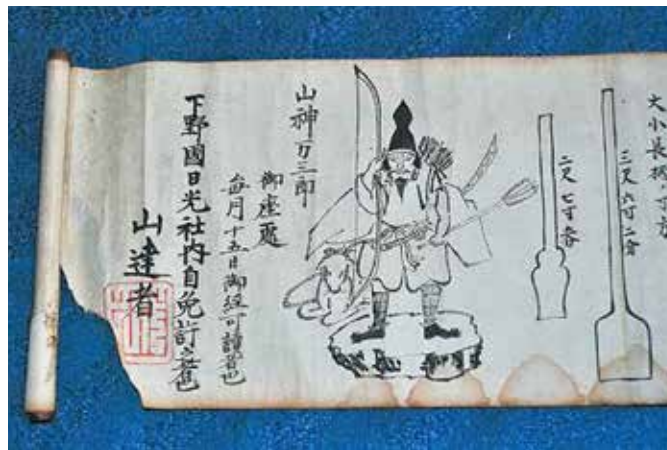 大小長柄
三尺六寸二分
二尺七寸
山神万三郎
御座處
毎月十五日御経可誦者也
下野國日光社内自免許之者也
山達者